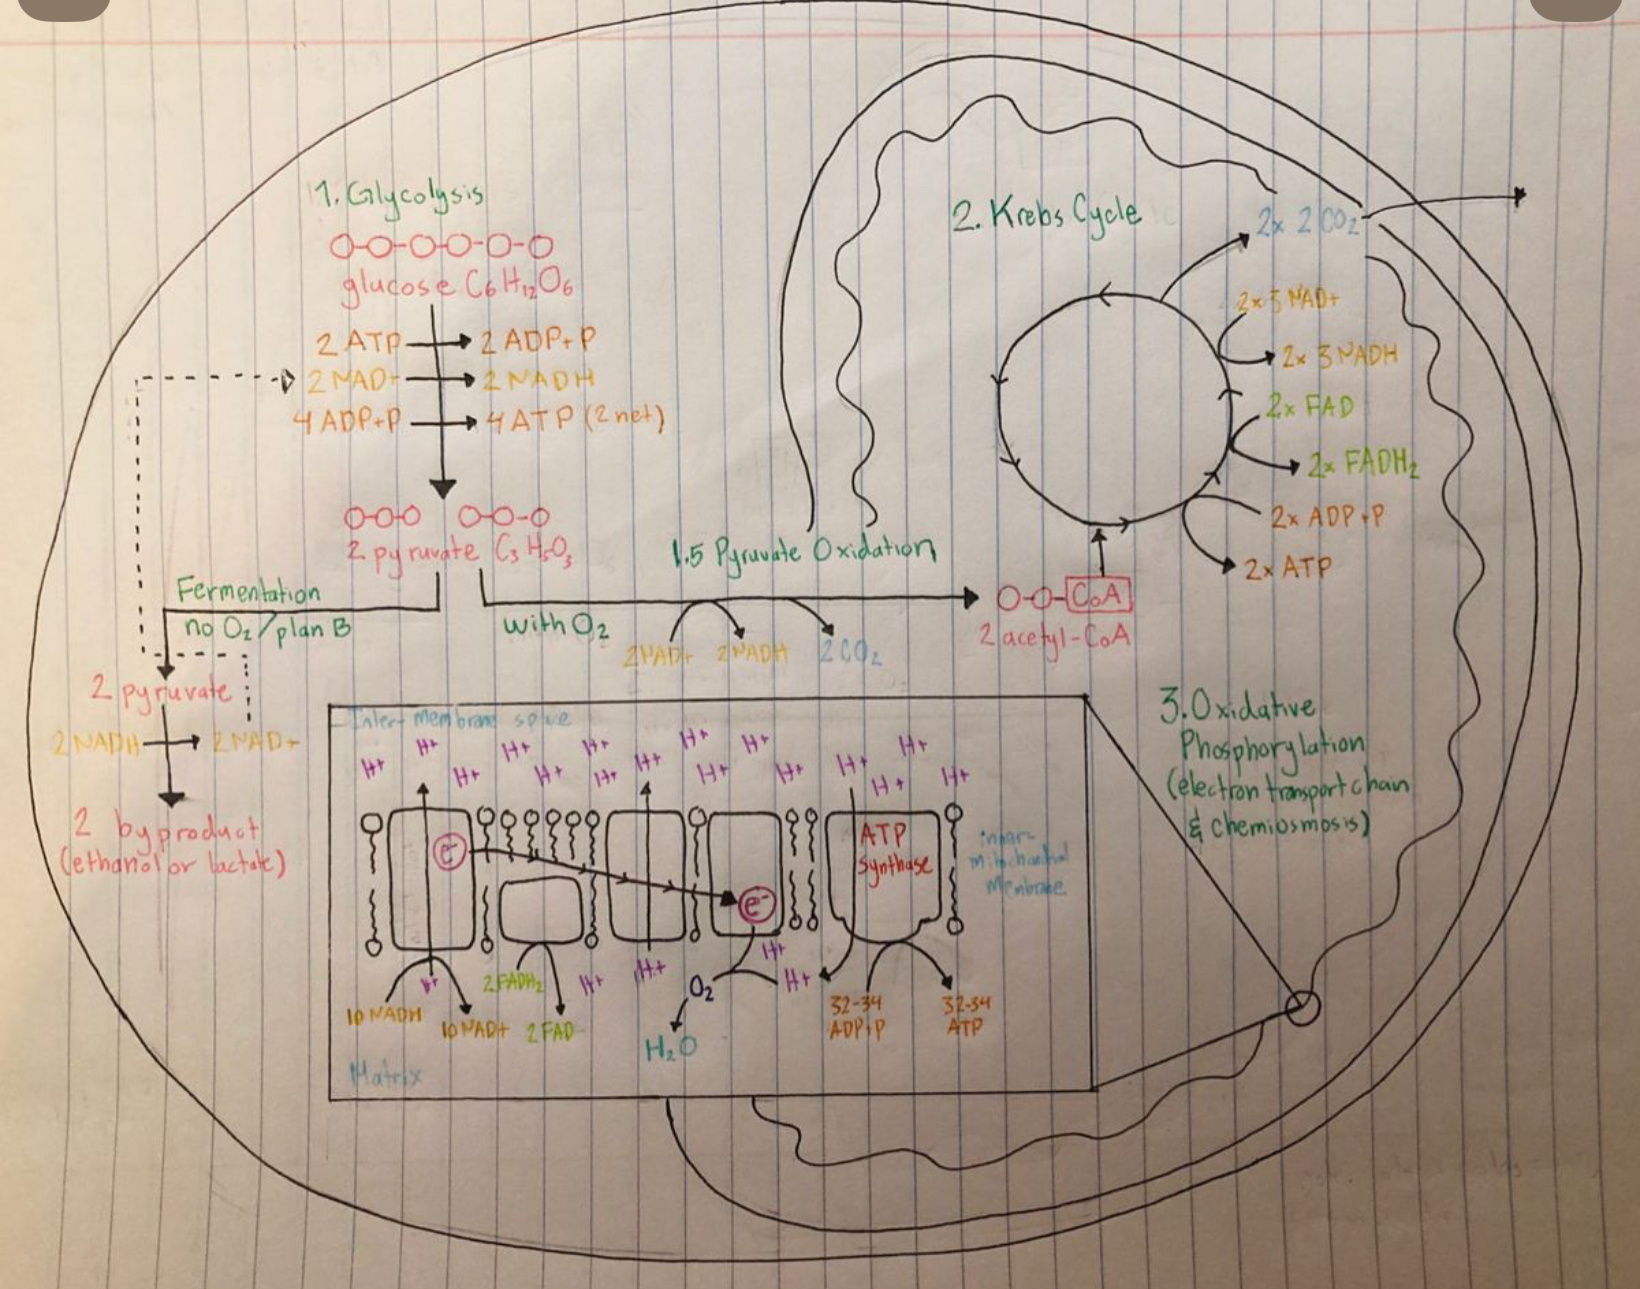 1. Glycolysis
glucose C6H12O6
2 ATP → 2 ADP+P
2 NAD+ → 2 NADH
4 ADP+P → 4 ATP (2 net)
2 pyruvate C3H5O3
Fermentation
no O2/plan B
2 pyruvate
2 NADH → 2 NAD+
2 byproduct
(ethanol or lactate)
1.5 Pyruvate Oxidation
with O2
2 NAD+ 2 NADH 2 CO2
CoA
2 acetyl-CoA
2. Krebs Cycle
2x 2 CO2
2x 3 NAD+
2x 3 NADH
2x FAD
2x FADH2
2x ADP+P
2x ATP
3. Oxidative
Phosphorylation
(electron transport chain
& chemiosmosis)
Inter-membrane space
H+ H+ H+ H+ H+ H+ H+
H+ H+ H+ H+ H+ H+ H+ H+ H+
e-
e-
ATP
Synthase
inner-
mitochondrial
membrane
H+ H+ H+ H+ H+
10 NADH
10 NAD+
2 FADH2
2 FAD
O2
H2O
32-34
ADP+P
32-34
ATP
Matrix